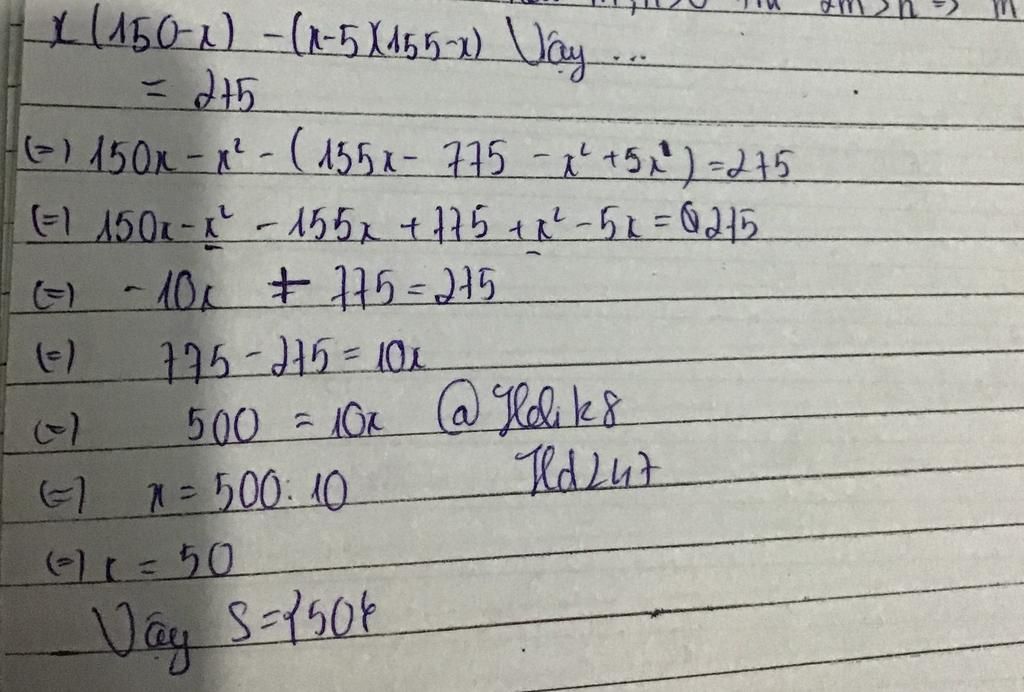 2m>n => m
x(150-x) - (x-5)(155-x) Vậy ...
= 275
(=) 150x - x² - (155x - 775 - x² + 5x) = 275
(=) 150x - x² - 155x + 775 + x² - 5x = 275
(=) - 10x + 775 = 275
(=) 775 - 275 = 10x
(=) 500 = 10x
(=) x = 500 : 10
(=) x = 50
Vậy S={50}